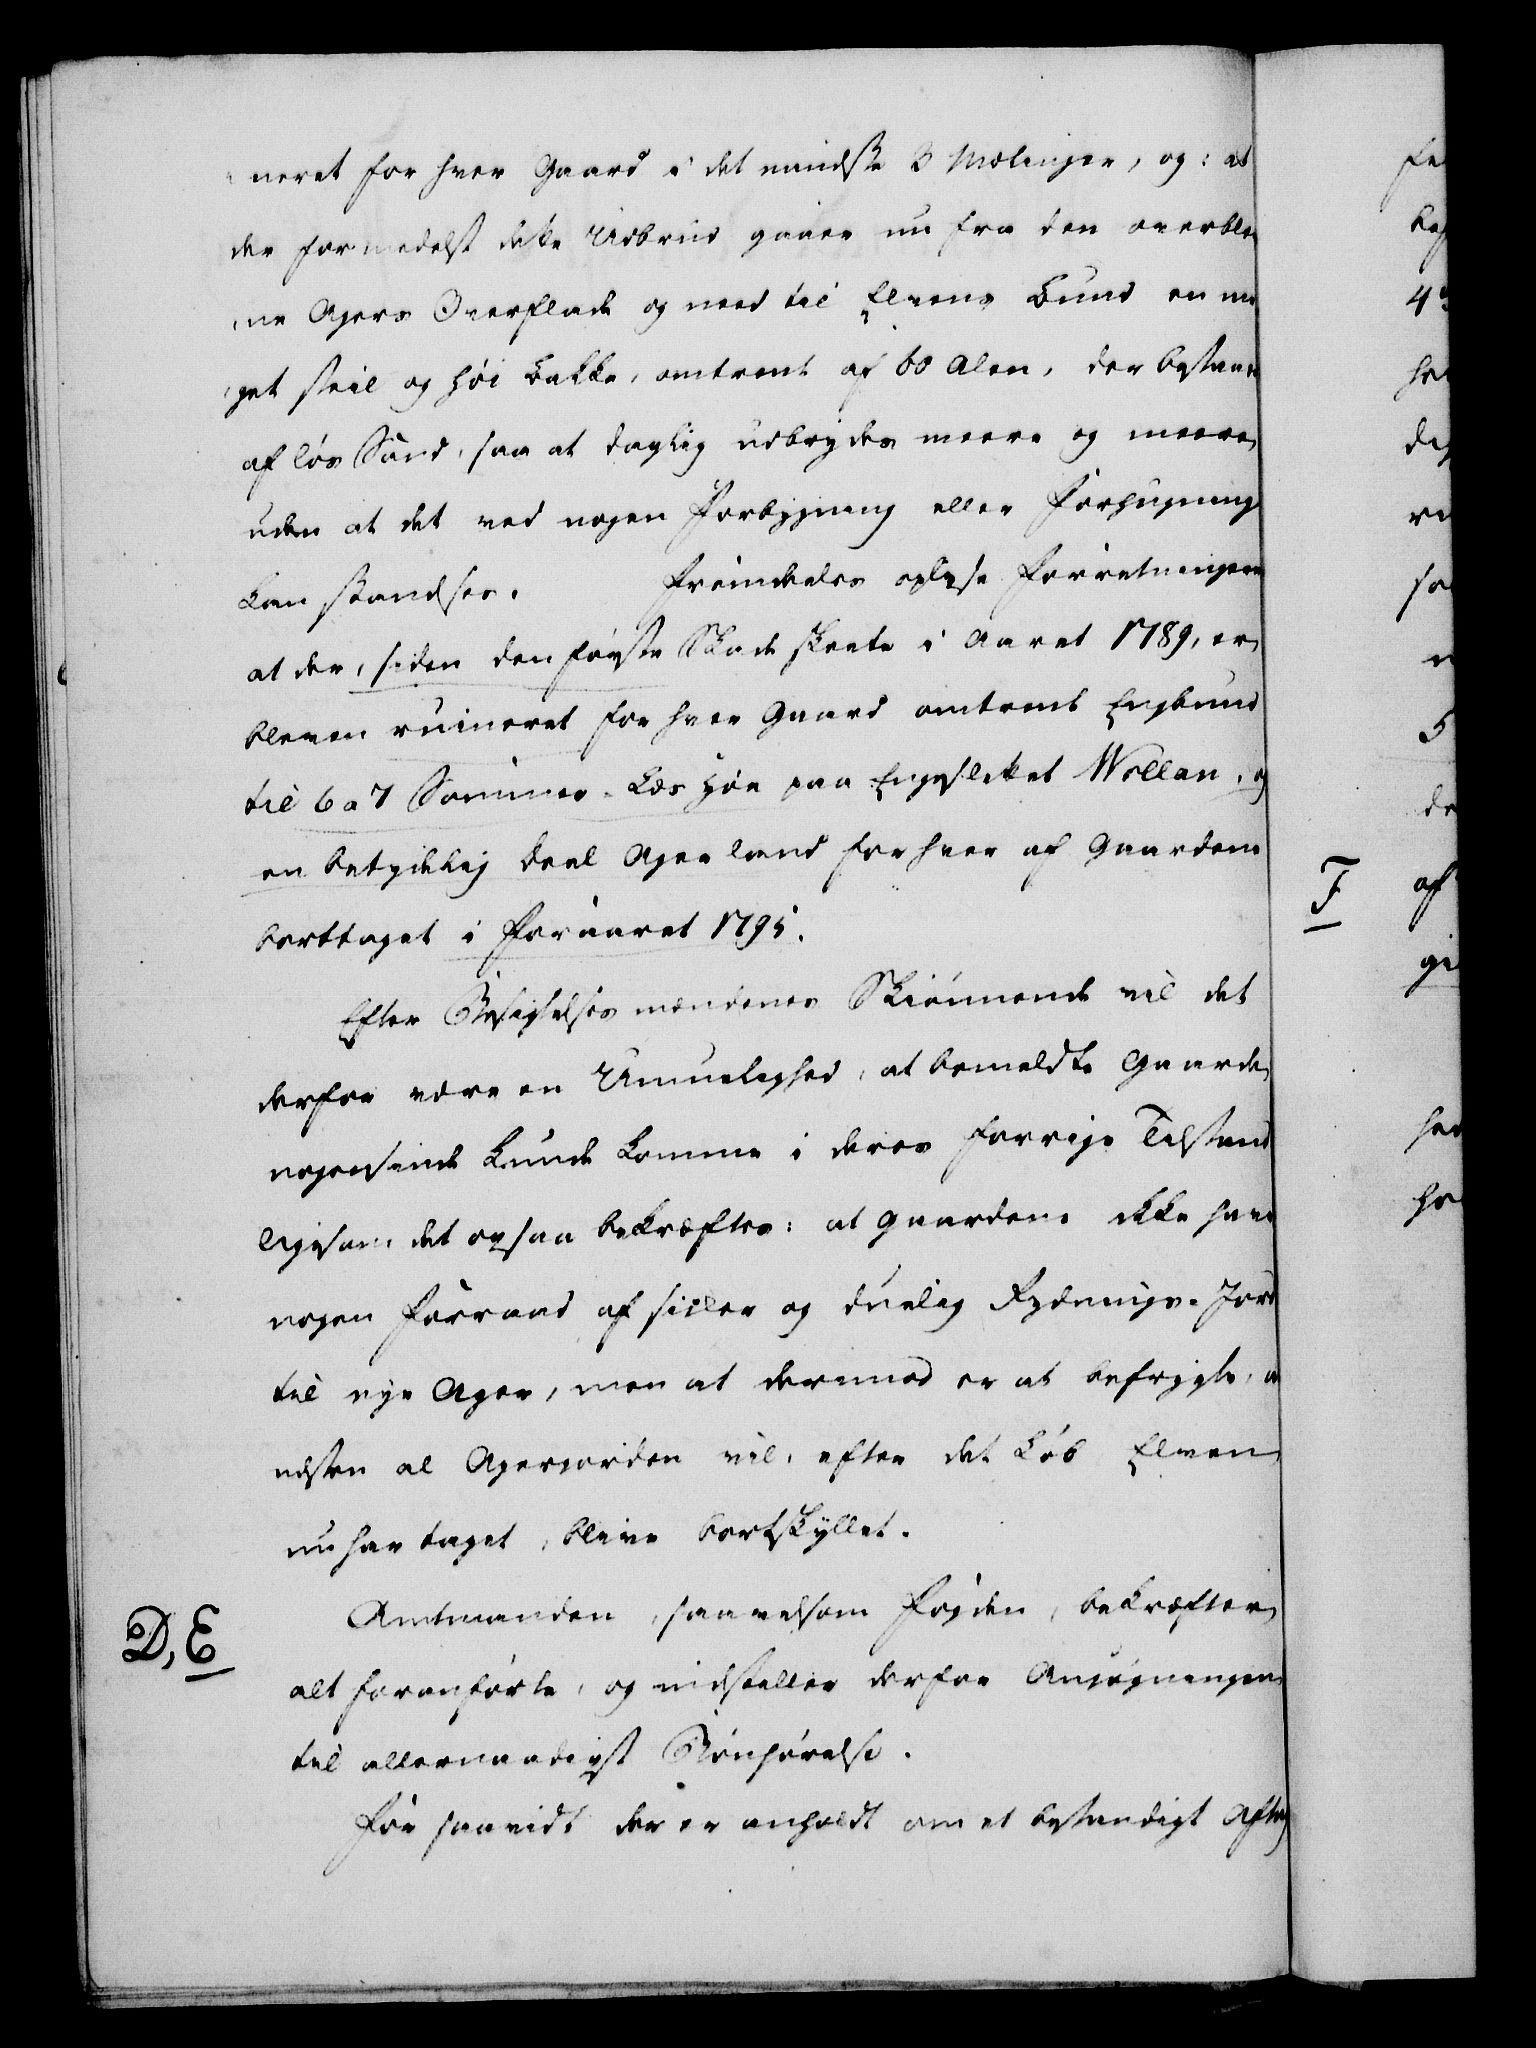 neret for hver Gaard i det mindste 3 Mælinger, og: at
der formedelst dette Udbrud gaaer nu fra den overble
ne Agers Overflade og need til Elvens Bund en me
get steil og høi Bakke, omtrent af 60 Alen, der bestaaer
af løs Sand, saa at daglig udbrydes meere og meere,
uden at det ved nogen Forbygning eller Forhugning
kan standses. Fremdeeles oplyse Forretningerne
at der, siden den første Skade skeete i Aaret 1789, er
bleven ruineret for hver Gaard omtrent Engbund
til 6 a 7 Sommer-Læs Høe paa Engeslettet Wollan, og
en betydelig Deel Ager land for hver af Gaardene
borttaget i Foraaret 1795.
Efter Besigtelsesmændenes Skiønnende vil det
derfor være en Umuelighed, at bemeldte Gaarde
nogensinde kunde komme i deres forrige Tilstand
ligesom det ogsaa bekræftes: at Gaardene ikke have
nogen Forraad af sider og duelig Rydnings-Jord
til nye Ager, men at derimod er at befrygte, at
næsten al Agerjorden vil, efter det Løb Elven
nu har taget, blive bortskyllet.
D, E
Amtmanden, saavelsom Fogden, bekræfter
alt foranførte, og indstiller derfor Ansøgningen
til allernaadigst Bønhørelse.
For saavidt der er anholdt om et bestandigt Aftag
F